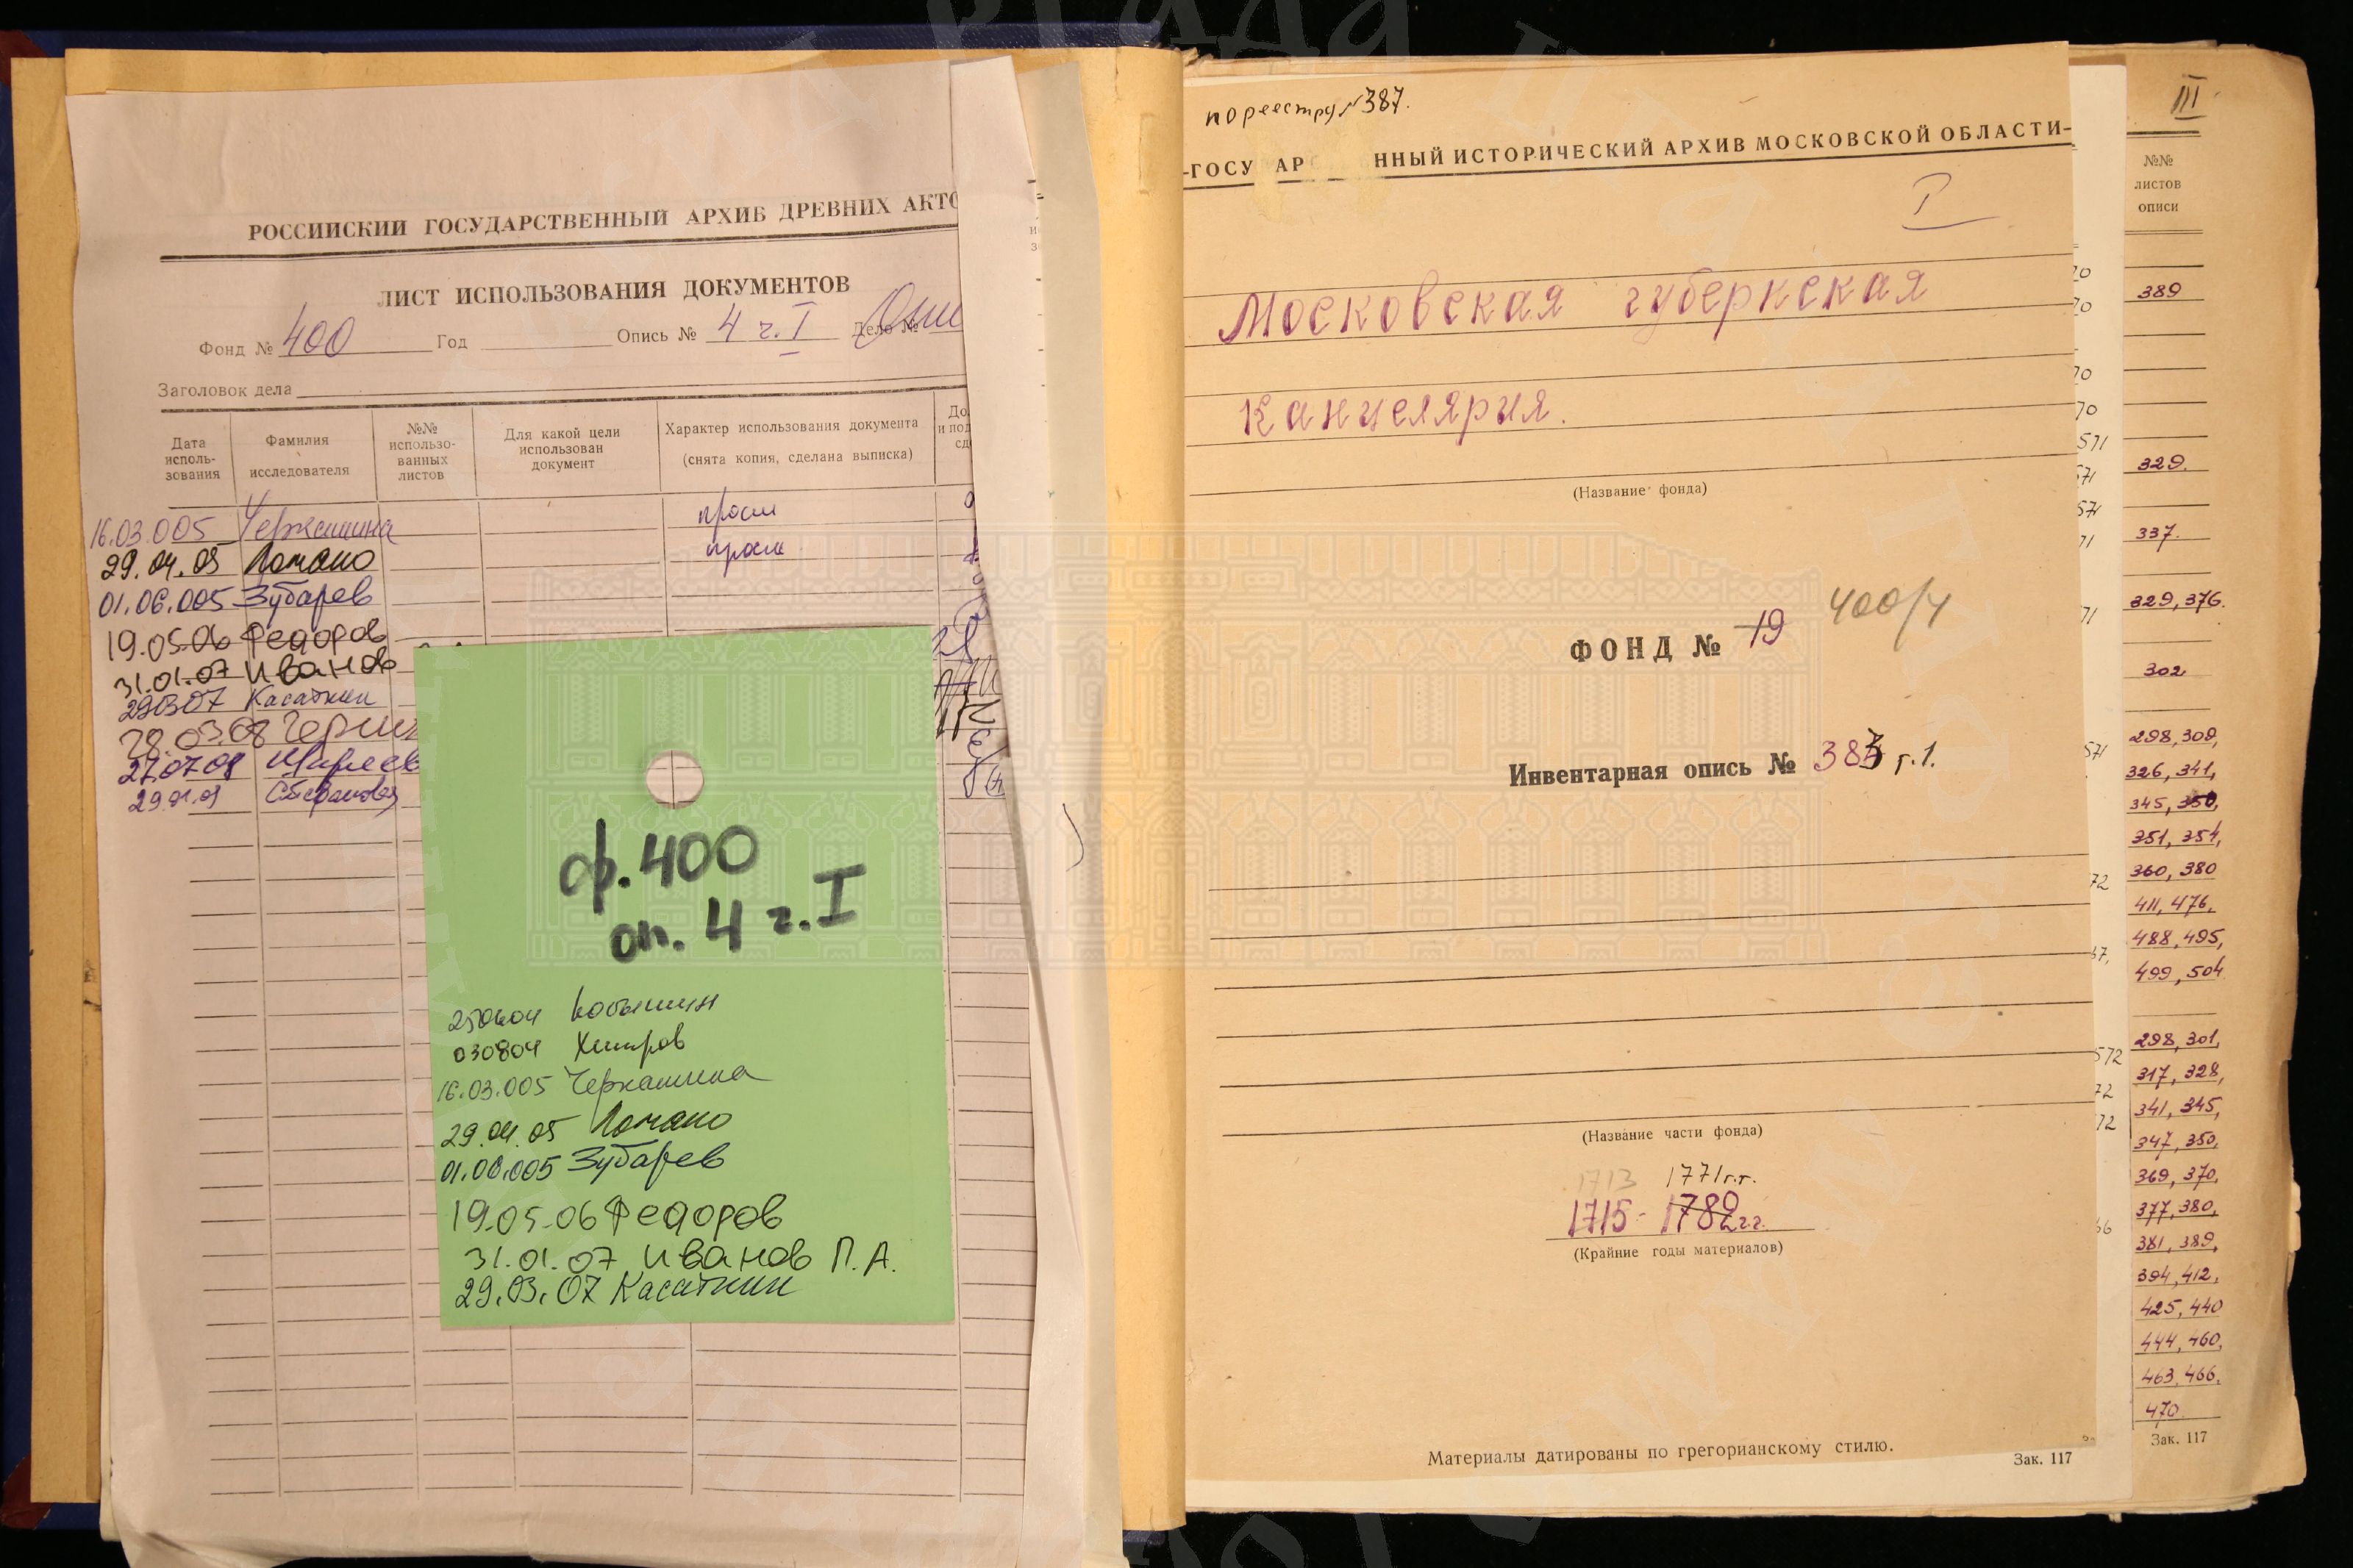 РОССИЙСКИЙ ГОСУДАРСТВЕННЫЙ АРХИВ ДРЕВНИХ АКТО
ЛИСТ ИСПОЛЬЗОВАНИЯ ДОКУМЕНТОВ
Фонд № 400 Год Опись № 4 ч. I Дело №
Заголовок дела
Дата исполь-зования
Фамилия исследователя
№№ использо-ванных листов
Для какой цели использован документ
Характер использования документа (снята копия, сделана выписка)
16.03.005 Черкашина
29.04.05
01.06.005 Зубарев
19.05.06 Федоров
31.01.07 Иванов
29.03.07 Касаткин
28.03.08
27.07.08
ф. 400
оп. 4 ч. I
250604
030804
16.03.005 Черкашина
29.04.05
01.06.005 Зубарев
19.05-06 Федоров
31.01.07 Иванов П.А.
29.03.07 Касаткин
по реестру №387.
-ГОСУ АР НЫЙ ИСТОРИЧЕСКИЙ АРХИВ МОСКОВСКОЙ ОБЛАСТИ-
I
Московская губернская
Канцелярия.
(Название фонда)
ФОНД № 19 400/4
Инвентарная опись № 383 г.1.
(Название части фонда)
1713 1771 г.г.
1715-1782 г.г.
(Крайние годы материалов)
Материалы датированы по грегорианскому стилю.
Зак. 117
III
№№
листов
описи
389
329.
337.
329, 376.
302
298, 309,
326, 341,
345, 350,
351, 354,
360, 380
411, 476,
488, 495,
499, 504
298, 301,
317, 328,
341, 345,
347, 350,
369, 370,
377, 380,
381, 389,
394, 412,
425, 440
444, 460,
463, 466,
470.
Зак. 117